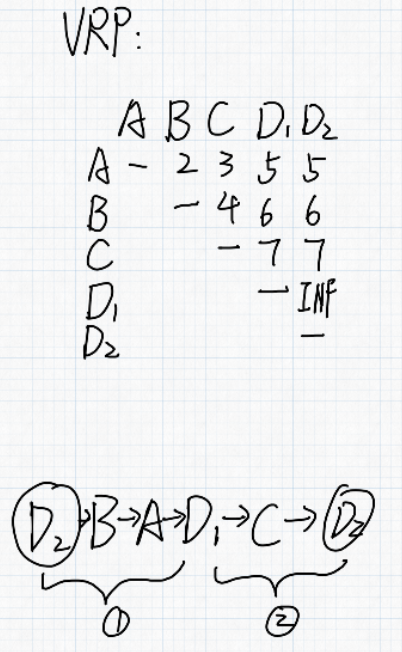 VRP:
A B C D₁ D₂
A - 2 3 5 5
B - 4 6 6
C - 7 7
D₁ - INF
D₂ -
D₂→B→A→D₁→C→D₂
① ②